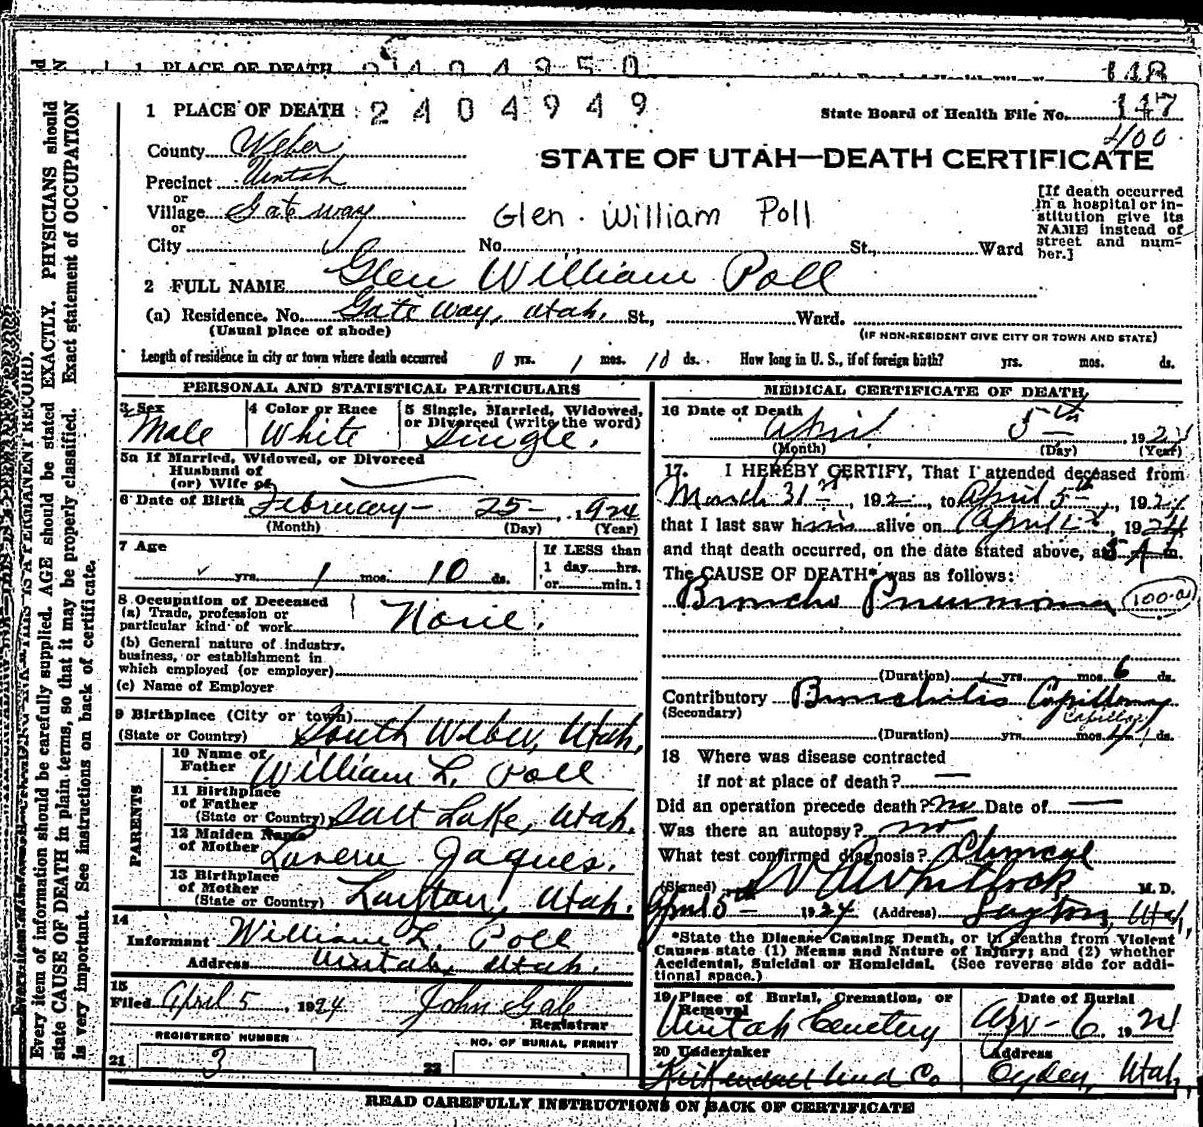 1 PLACE OF DEATH 2404950
State Board of Health File No. 148
1 PLACE OF DEATH 2404949
State Board of Health File No. 147
400
County Weber
STATE OF UTAH—DEATH CERTIFICATE
Precinct Uintah
or
Village Gateway
or
City
Glen William Poll
No. St., Ward
[If death occurred
in a hospital or in-
stitution give its
NAME instead of
street and num-
ber.]
2 FULL NAME Glen William Poll
(a) Residence. No. Gate Way, Utah. St., Ward.
(Usual place of abode)
(IF NON-RESIDENT GIVE CITY OR TOWN AND STATE)
Length of residence in city or town where death occurred 0 yrs. 1 mos. 10 ds. How long in U. S., if of foreign birth? yrs. mos. ds.
PERSONAL AND STATISTICAL PARTICULARS
3 Sex
Male
4 Color or Race
White
5 Single, Married, Widowed,
or Divorced (write the word)
Single.
5a If Married, Widowed, or Divorced
Husband of
(or) Wife of
6 Date of Birth February 25 1924
(Month) (Day) (Year)
7 Age
yrs. 1 mos. 10 ds.
If LESS than
1 day hrs.
or min.
8 Occupation of Deceased
(a) Trade, profession or
particular kind of work None.
(b) General nature of industry,
business, or establishment in
which employed (or employer)
(c) Name of Employer
9 Birthplace (City or town)
(State or Country) South Weber, Utah.
PARENTS
10 Name of
Father William L. Poll
11 Birthplace
of Father
(State or Country) Salt Lake, Utah.
12 Maiden Name
of Mother Lavern Jaques.
13 Birthplace
of Mother
(State or Country) Layton, Utah.
14
Informant William L. Poll
Address Uintah, Utah.
15
Filed April 5, 1924 John Gale
Registrar
REGISTERED NUMBER
21 3
NO. OF BURIAL PERMIT
22
MEDICAL CERTIFICATE OF DEATH
16 Date of Death
April 5th 1924
(Month) (Day) (Year)
17. I HEREBY CERTIFY, That I attended deceased from
March 31st, 192, to April 5th, 1924
that I last saw him alive on April, 1924
and that death occurred, on the date stated above, at 5 A m.
The CAUSE OF DEATH* was as follows:
Broncho Pneumonia
(Duration) yrs. mos. 6 ds.
Contributory Bronchitis Capillary
(Secondary)
Capillary
(Duration) yrs. mos. ds.
18 Where was disease contracted
if not at place of death? —
Did an operation precede death? no Date of —
Was there an autopsy? no
What test confirmed diagnosis? Clinical
(Signed) Whitlock M. D.
April 5th 1924 (Address) Layton, Utah,
*State the Disease Causing Death, or in deaths from Violent
Causes state (1) Means and Nature of Injury; and (2) whether
Accidental, Suicidal or Homicidal. (See reverse side for addi-
tional space.)
19 Place of Burial, Cremation, or
Removal
Uintah Cemetery
Date of Burial
Apr - 6 1924
20 Undertaker
Kirkendall Und Co
Address
Ogden, Utah
READ CAREFULLY INSTRUCTIONS ON BACK OF CERTIFICATE
Every item of information should be carefully supplied. AGE should be stated EXACTLY. PHYSICIANS should
state CAUSE OF DEATH in plain terms, so that it may be properly classified. Exact statement of OCCUPATION
is very important. See instructions on back of certificate.